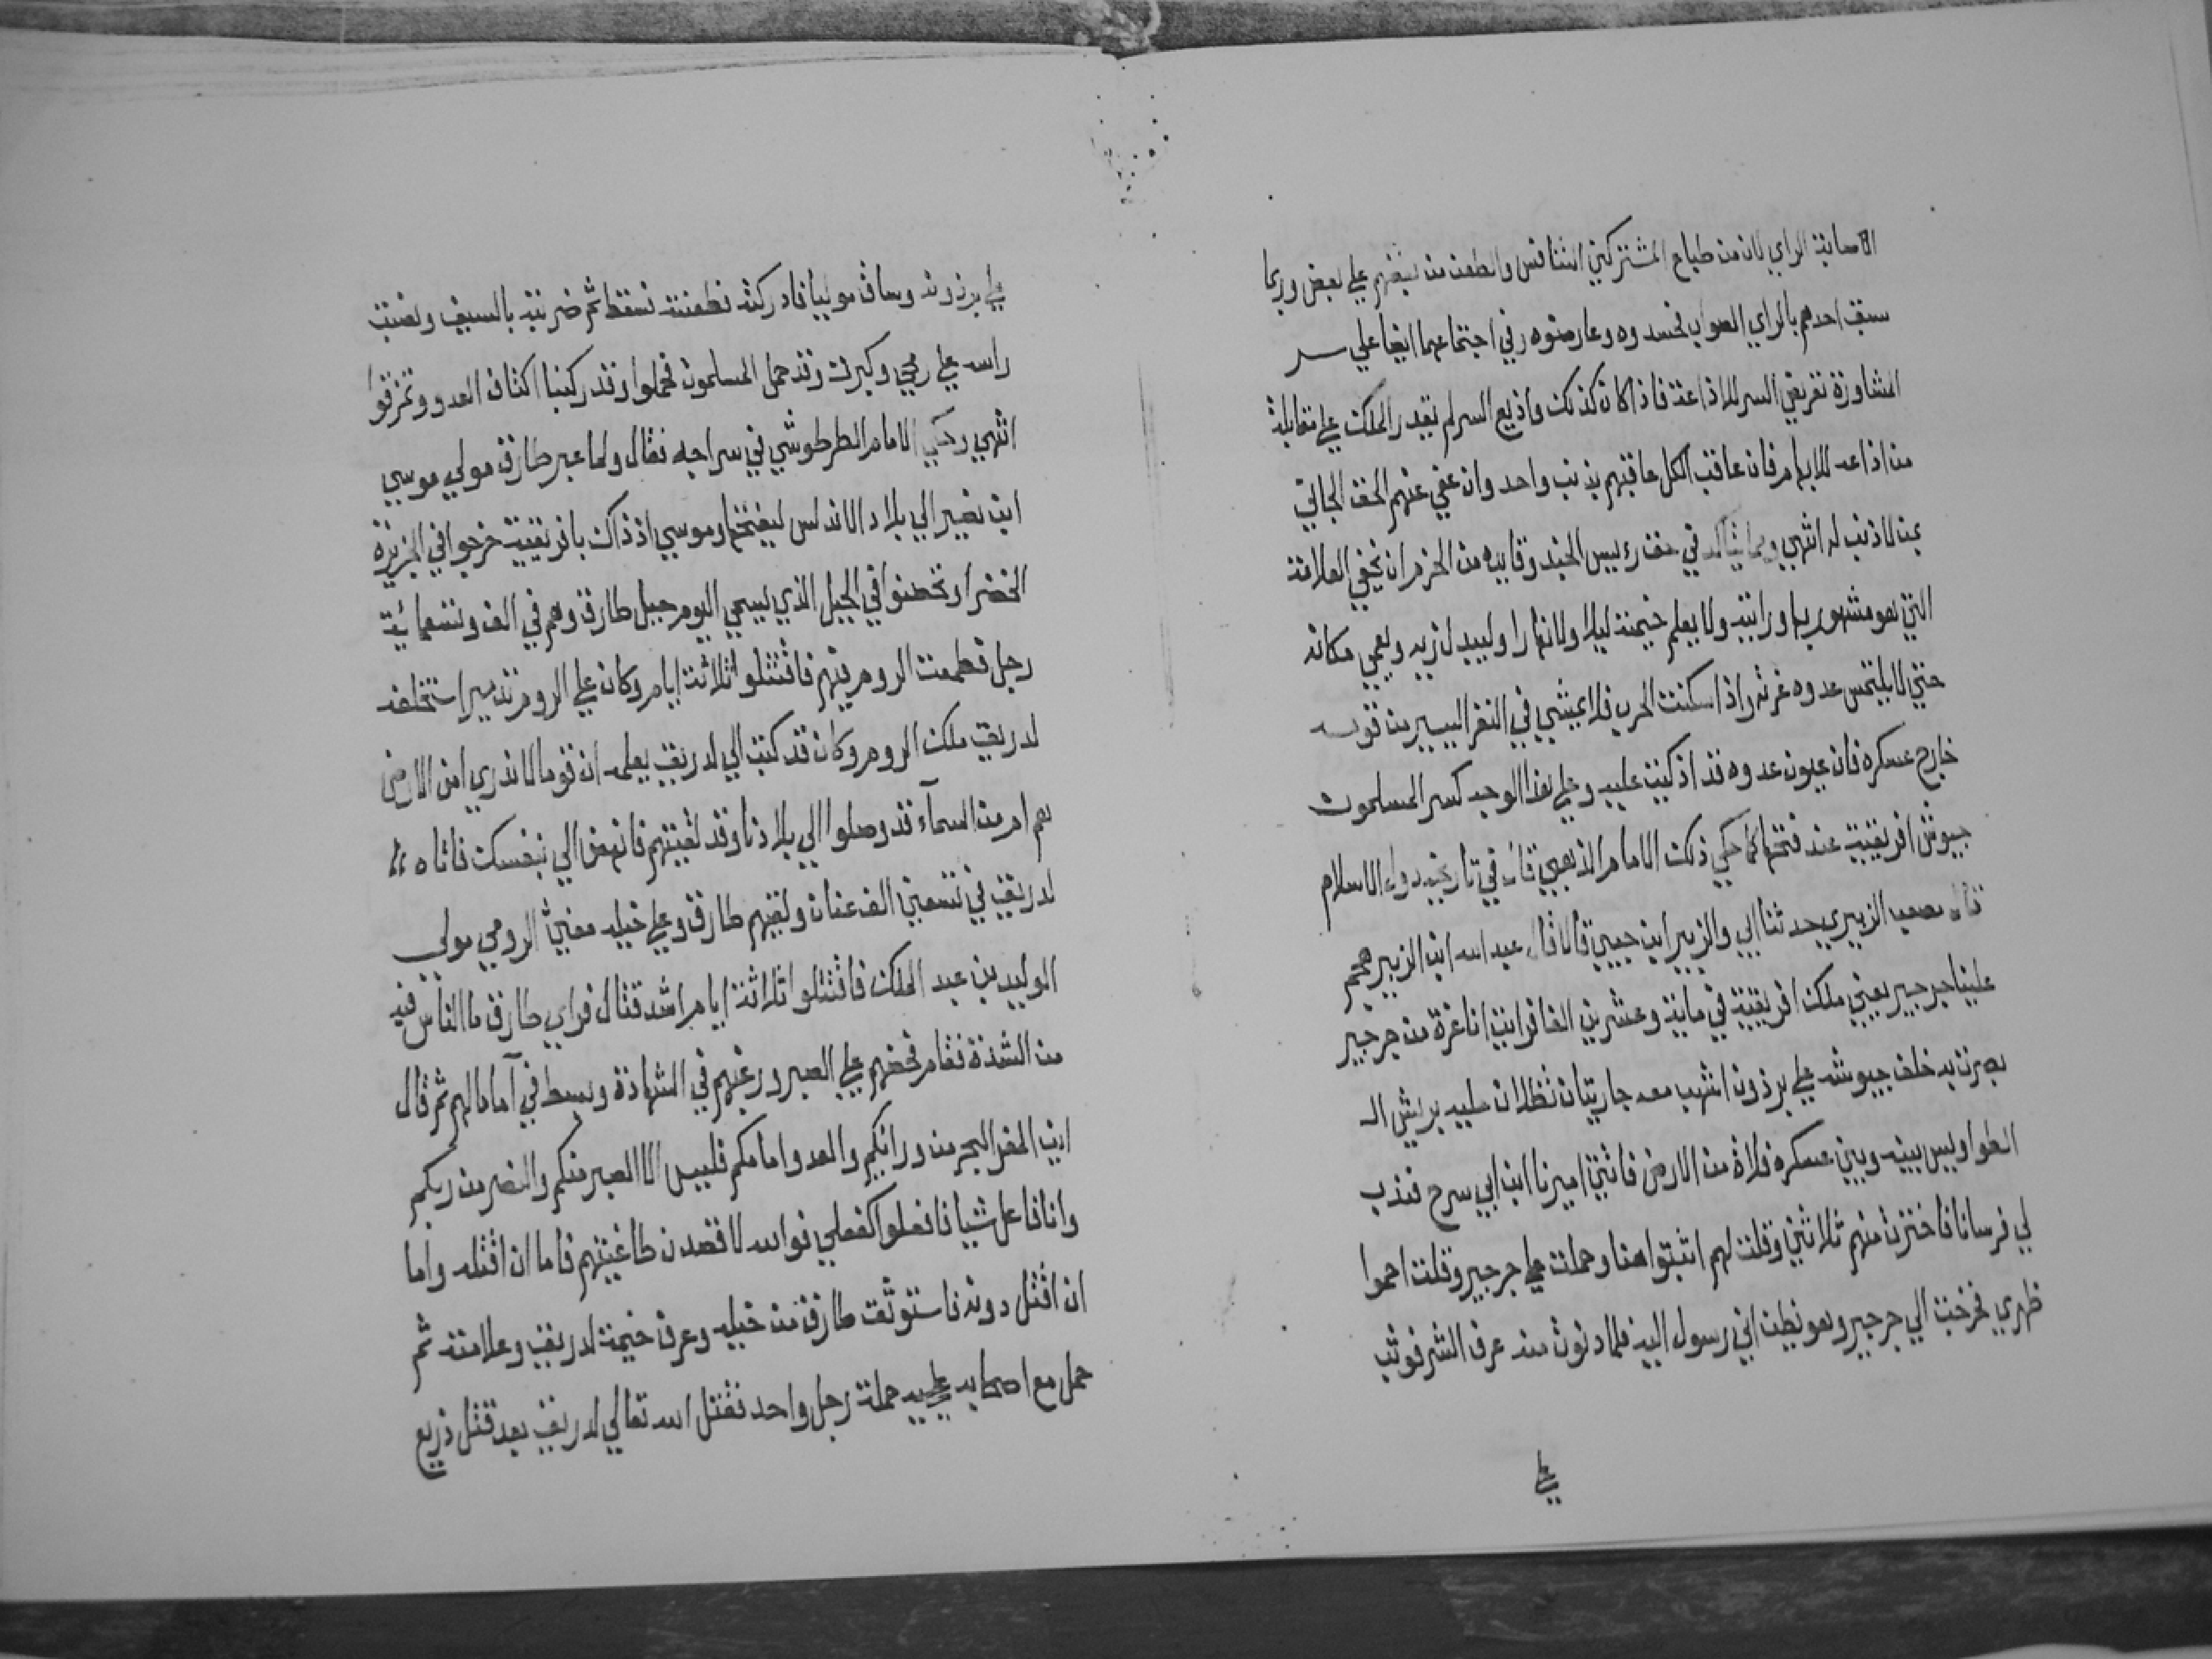 الاصابة الراي لان من طباع المشتركين التنافس والطعن من بعضهم علي بعض وربما
سبق احدهم بالراي الصواب فحسدوه وعارضوه وفي اجتماعهما ايضا علي سر
المشاورة تعريض السر للاذاعة فاذا كان كذلك واذيع السر لم يقدر الملك علي مقابلة
من اذاعه للابهام فان عاقب الكل عاقبهم بذنب واحد وان عفي عنهم الحق الجاني
بمن لا ذنب له انتهي ومما يتاكد في حق رئيس الجند وقايده من الحزم ان يخفي العلامة
التي هو مشهور بها ورايته ولا يعلم خيمته ليلا ولا نهارا وليبدل زيه ويعمي مكانه
حتي لا يلتمس عدوه غرته واذا سكنت الحرب فلا يمشي في النفر اليسير من قومه
خارج عسكره فان عيون عدوه قد اذكيت عليه وعلي هذا الوجه كسر المسلمون
جيوش افريقية عند فتحها كما حكي ذلك الامام الذهبي قال في تاريخه دول الاسلام
قال مصعب الزبيري حدثنا ابي والزبير ابن حبيب قالا قال عبد الله ابن الزبير هجم
علينا جرجير يعني ملك افريقية في ماية وعشرين الفا فرايت انا غرة من جرجير
بصرت به خلف جيوشه علي برذون اشهب معه جاريتان تظلان عليه بريش الـ
الطواويس بينه وبين عسكره فلاة من الارض فاتيت اميرنا ابن ابي سرح فندب
لي فرسانا فاخترت منهم ثلاثين وقلت لهم اثبتوا هنا وحملت علي جرجير وقلت احموا
ظهري فخرجت الي جرجير وهو يظن اني رسول اليه فلما دنوت منه عرف الشر فوثب
علي
علي برذونه وساق موليا فادركته فطعنته فسقط ثم ضربته بالسيف ونصبت
راسه علي رمحي وكبرت وقد حمل المسلمون فحملوا وقد ركبنا اكتاف العدو وتمزقوا
انتهي وحكي الامام الطرطوشي في سراجه فقال ولما عبر طارق مولي موسي
ابن نصير الي بلاد الاندلس ليفتحها وموسي اذ ذاك بافريقية خرجوا في الجزيرة
الخضرا وتحصنوا في الجبل الذي يسمي اليوم جبل طارق وهم في الف وتسعمائة
رجل فطمعت الروم فيهم فاقتتلوا ثلاثة ايام وكان علي الروم تدمير استخلفه
لدريق ملك الروم وكان قد كتب الي لدريق يعلمه ان قوما لا ندري امن الارض
هم ام من السمآء قد وصلوا الي بلادنا وقد لقيتهم فانهض الي بنفسك فاتاه
لدريق في تسعين الف عنان ولقيهم طارق وعلي خيله مغيث الرومي مولي
الوليد بن عبد الملك فاقتتلوا ثلاثة ايام اشد قتال فراي طارق ما الناس فيه
من الشدة فقام فحضهم علي الصبر ورغبهم في الشهادة وبسط في آمالهم ثم قال
اين المفر البحر من ورائكم والعدو امامكم فليس الا الصبر منكم والنصر من ربكم
وانا فاعل شيا فافعلوا كفعلي فوالله لاقصدن طاغيتهم فاما ان اقتله واما
ان اقتل دونه فاستوثق طارق من خيله وعرف خيمة لدريق وعلامته ثم
حمل مع اصحابه عليه حملة رجل واحد فقتل الله تعالي لدريق بعد قتل ذريع